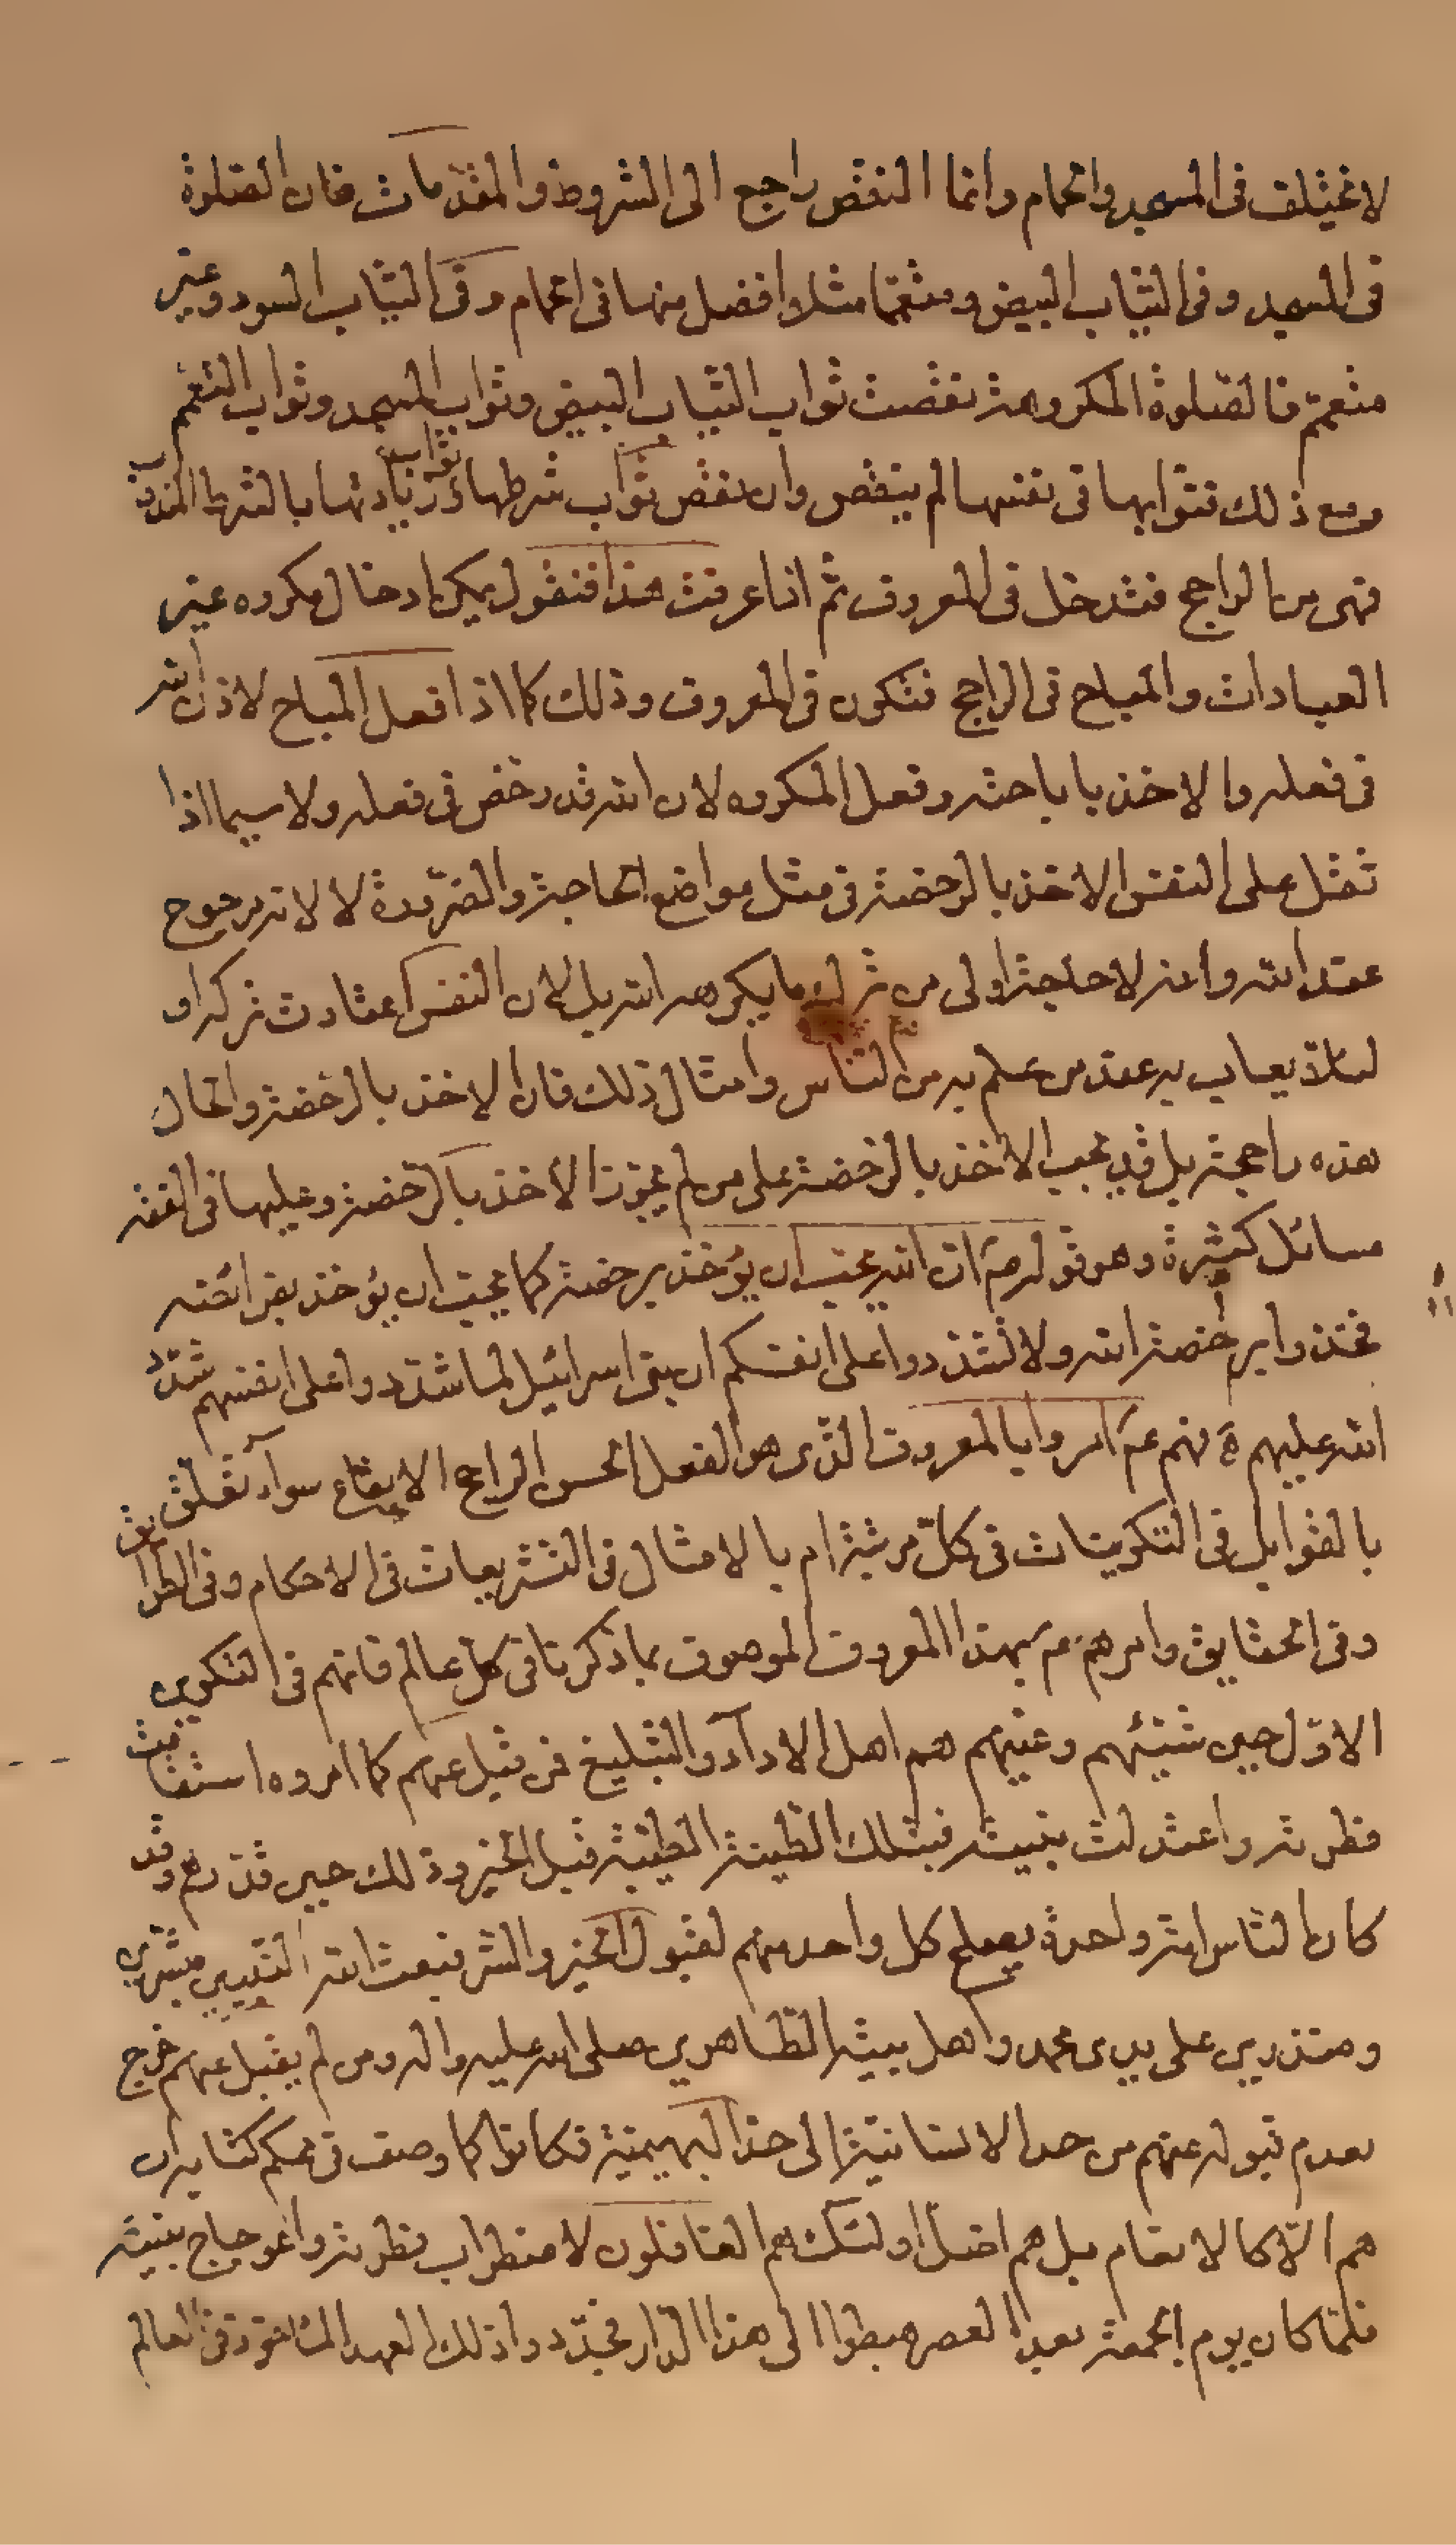 لا تختلف في المسجد والحمام وانما النقص راجع الى الشروط والمقدمات فان الصلوة
في المسجد وفي الثياب البيض ومتعمما مثلا افضل منها في الحمام وفي الثياب السود وغير
متعمم فالصلوة المكروهة نقصت ثواب الثياب البيض وثواب المسجد وثواب التعمم
ومع ذلك فثوابها في نفسها لم ينقص وان نقص ثواب شرطها وثواب زيادتها بالشرط المندوب
فهي من الراجح فتدخل في المعروف ثم اذا عرفت هذا فنقول يمكن ادخال مكروه غير
العبادات والمباح في الراجح فتكون في المعروف وذلك كما اذا فعل المباح لاذن الله
في فعله والاخذ باباحته وفعل المكروه لان الله قد رخص في فعله ولا سيما اذا
ثقل على النفس الاخذ بالرخصة في مثل مواضع الحاجة والضرورة لا لانه مرجوح
عند الله وانه لا حاجة اولى من ترك ما يكرهه الله بل لان النفس اعتادت تركه او
لئلا يعاب به عند من علم به من الناس وامثال ذلك فان الاخذ بالرخصة والحال
هذه راجحة بل قد يجب الاخذ بالرخصة على من لم يجوز الاخذ بالرخصة وعليها في الفقه
مسائل كثيرة وهو قوله ص ان الله يحب ان يؤخذ برخصه كما يحب ان يؤخذ بفرائضه
فخذوا برخصة الله ولا تشددوا على انفسكم ان بنى اسرائيل لما شددوا على انفسهم شدد
الله عليهم فهم ع امروا بالمعروف الذى هو الفعل الحسن الراجح الايقاع سواء تعلق
بالقوابل في التكوينات في كل مرتبة ام بالامثال في التشريعات في الاحكام وفي الطرايق
وفي الحقايق وامرهم ع بهذا المعروف الموصوف بما ذكرنا في كل عالم فانهم في التكوين
الاول حين شيئهم وعينهم هم اهل الاداء والتبليغ فمن قبل عنهم كما امروه استقامت
فطرته واعتدلت بنيته فبتلك الطينة الطيبة قبل الخير وذلك حين قدرهم وقد
كان الناس امة واحدة يصلح كل واحد منهم لقبول الخير والشر فبعث الله النبيين مبشرين
ومنذرين على يدى محمد واهل بيته الطاهرين صلى الله عليه واله ومن لم يقبل عنهم خرج
بعدم قبوله عنهم من حد الانسانية الى حد البهيمية فكانوا كما وصف في محكم كتابه ان
هم الا كالانعام بل هم اضل اولئك هم الغافلون لاضطراب فطرته واعوجاج بنيته
فلما كان يوم الجمعة بعد العصر هبطوا الى هذا الدار فجددوا ذلك العهد المأخوذ في العالم